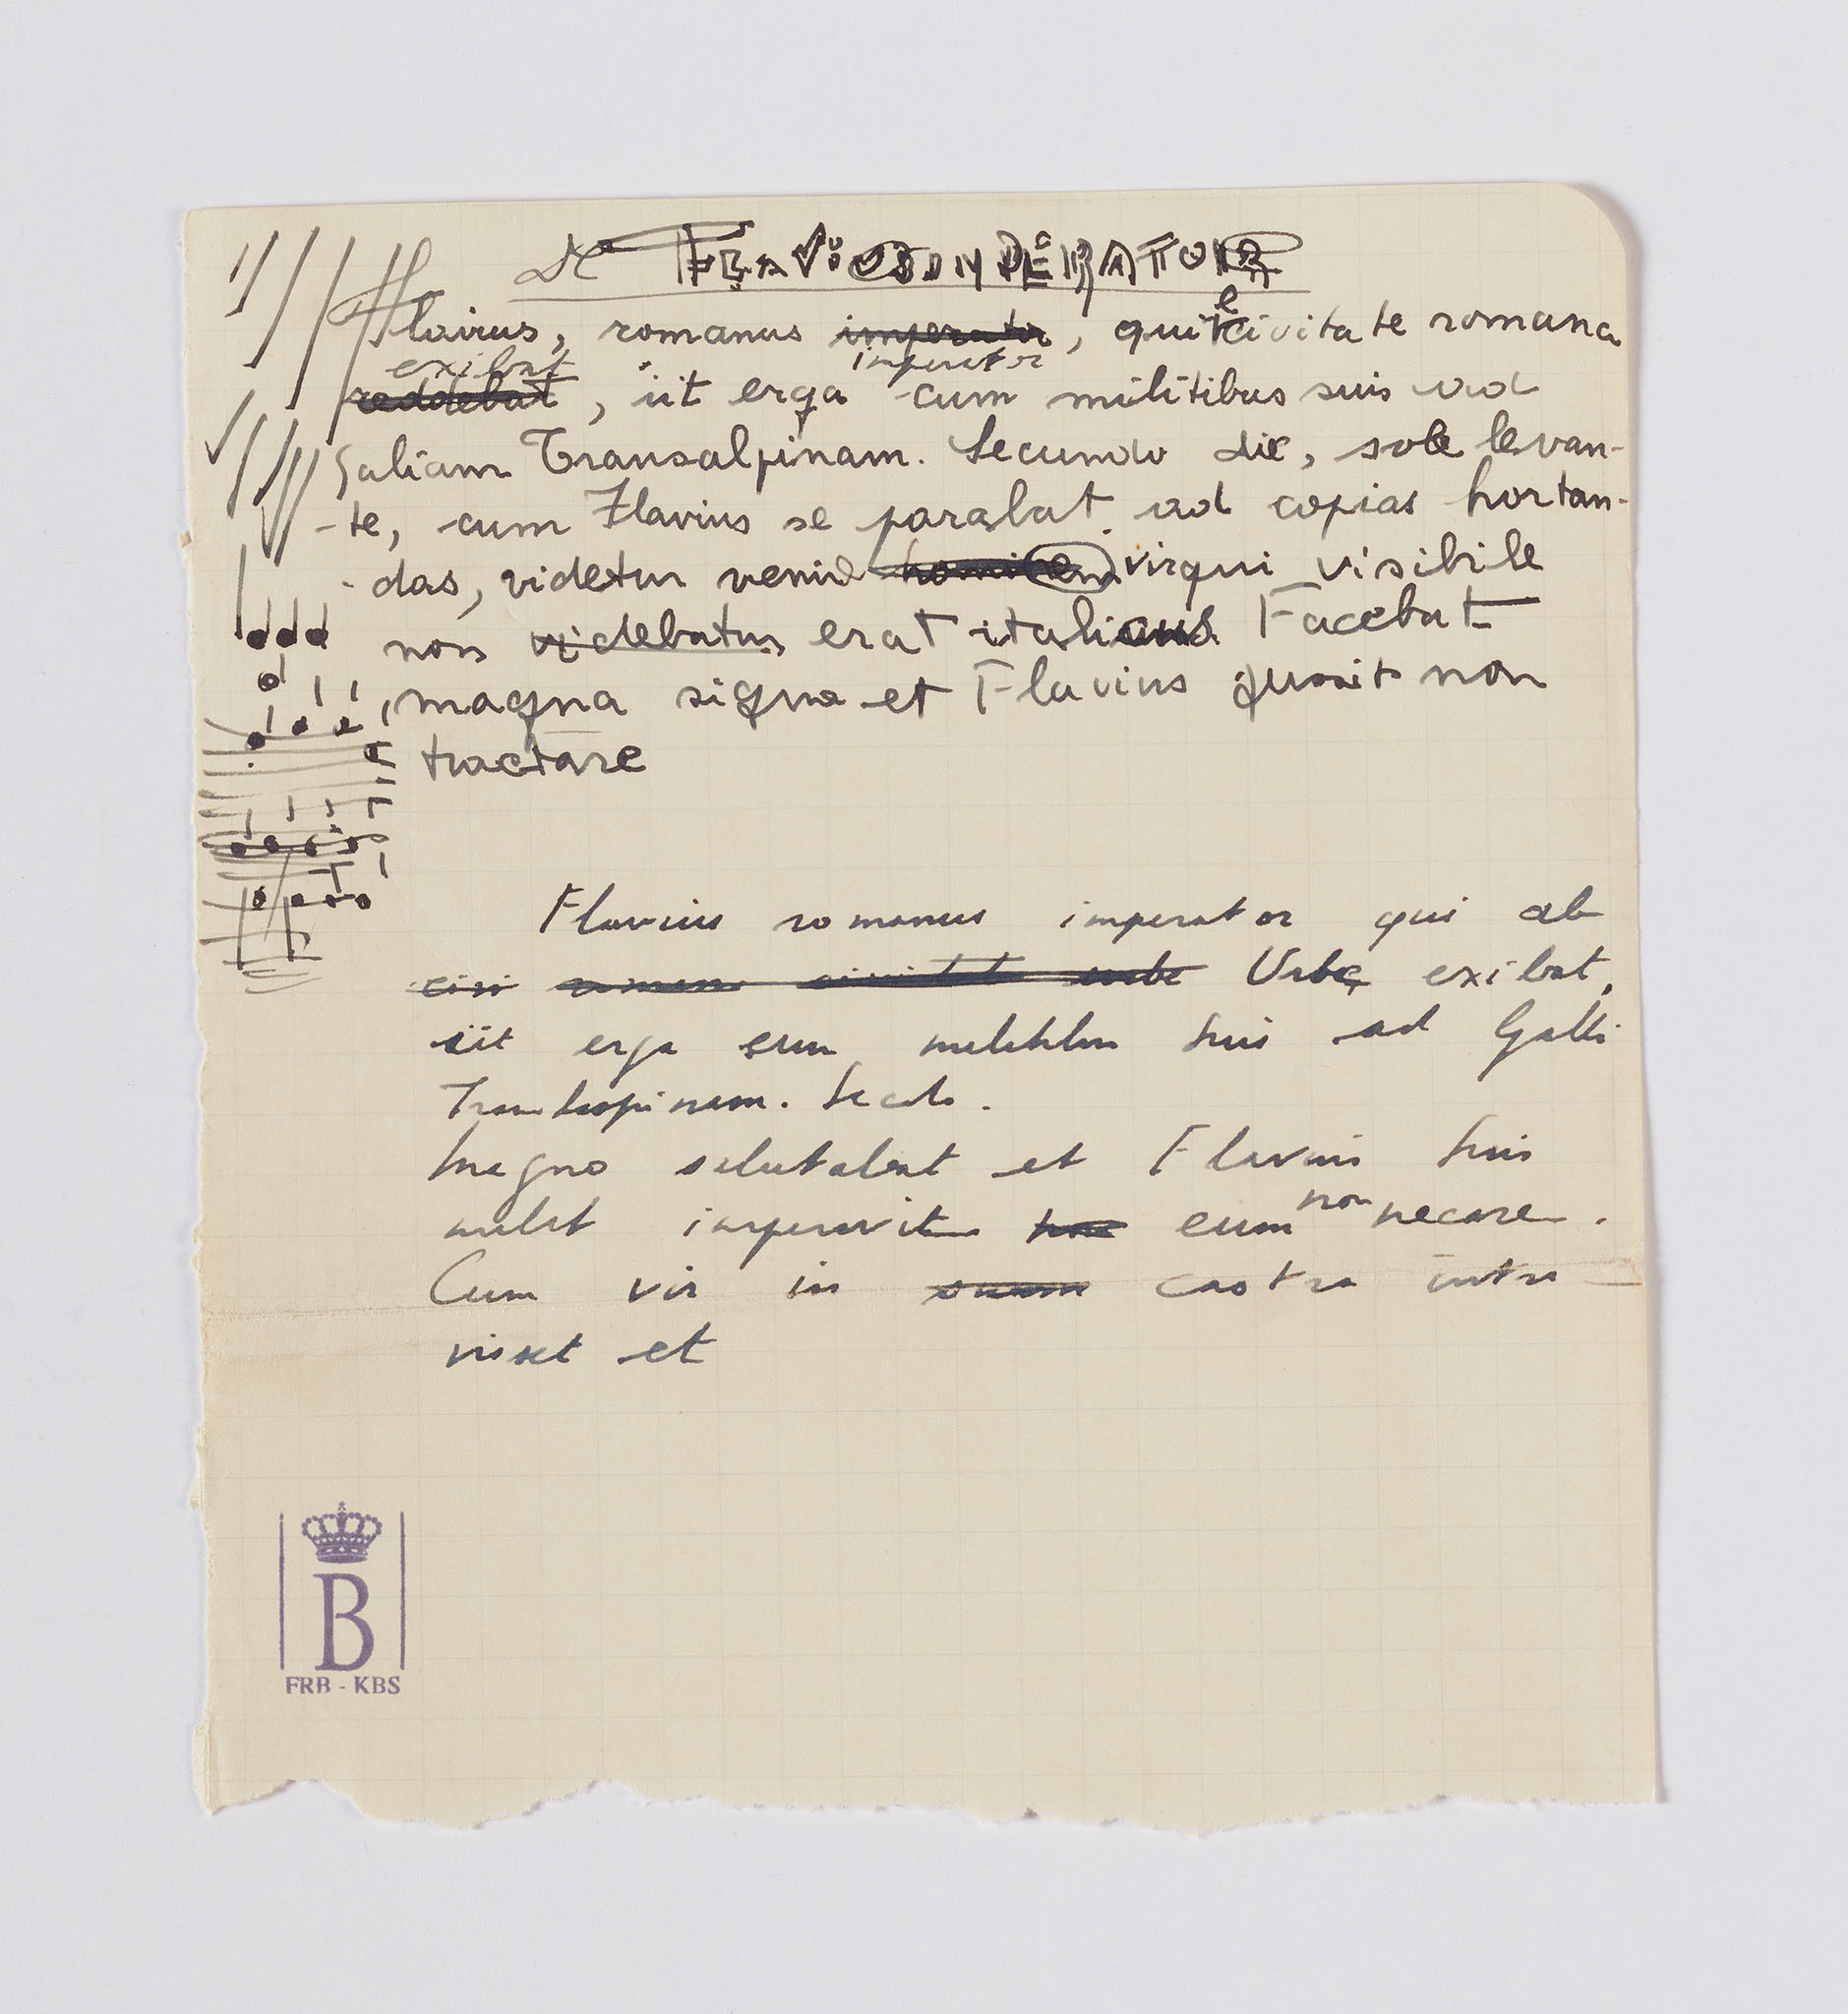 De FLAVIUS IMPERATOR
Flavius, romanus imperator, qui e civitate romana
exibat imperator
reddebat, iit erga cum militibus suis ad
Galiam Transalpinam. Secundo die, sole levan-
-te, cum Flavius se parabat ad copias hortan-
-das, videtur venire hominem vir qui visibile
non videbatur erat italicus Facebat
magna signa et Flavius jussit non
tractare
Flavius romanus imperator qui ab
civi roman civitate urbe Urbe exibat,
iit erga cum suis ad Galli
Transalpinam.
magno salutabat et Flavius suis
milit imperavit eum non necare.
Cum vir in suum castra intra
visset et
B
FRB - KBS